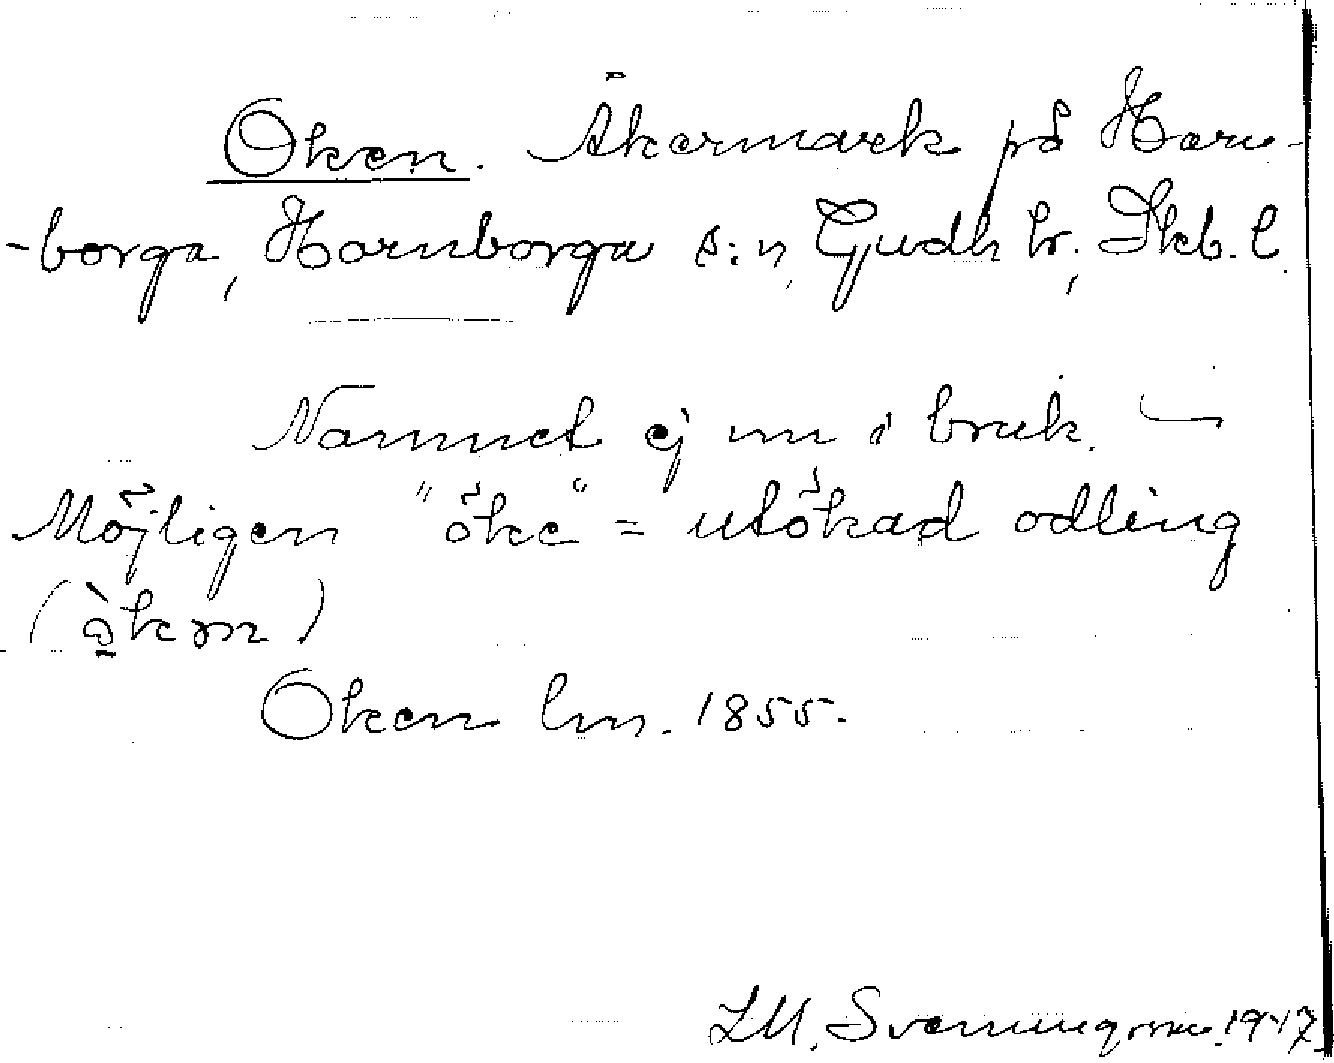 Oken. Åkermark på Horn-
-borga, Hornborga s:n, Gudh hr; Skb. l.
Namnet ej nu i bruk. –
Möjligen "öke" = utökad odling
(
Oken lm. 1855.
LM. Svenungsson. 1947